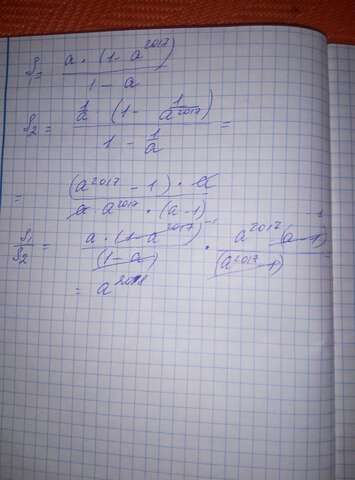 S₁ = a · (1 - a²⁰¹⁷) / (1 - a)
S₂ = 1/a · (1 - 1/a²⁰¹⁷) / (1 - 1/a) =
= (a²⁰¹⁷ - 1) · a / (a · a²⁰¹⁷ · (a - 1))
S₁/S₂ = a · (1 - a²⁰¹⁷)⁻¹ / (1 - a) · a²⁰¹⁷ (a - 1)⁻¹ / (a²⁰¹⁷ - 1) =
= a²⁰¹⁸